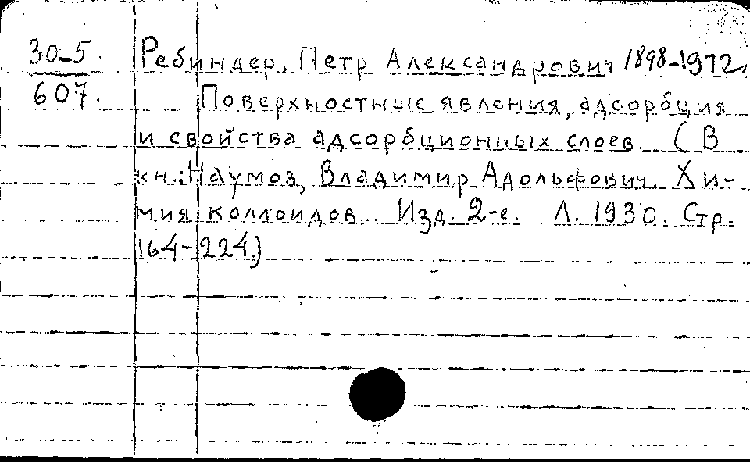 30-5.
607.
Ребиндер, Петр Александрович 1898-1972.
Поверхностные явления, адсорбция
и свойства адсорбционных слоев (В
кн.: Наумов, Владимир Адольфович. Хи-
мия коллоидов. Изд. 2-е. Л. 1930. Стр.
164-224.)